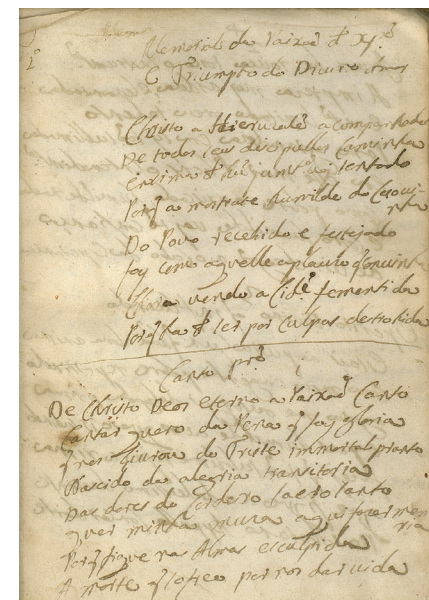 1º
Memorial da Paixaõ de Xpº
e Triumpho do Divino Amor
Christo a Hierusalẽ acompanhado
De todos seus discipulos caminha
Ensima de hũ jumtº vaj sentado
Porq̃ a mostrase humilde do Ceo vi-
nha
Do Povo recebido e festejado
foy com aquelle aplauzo q̃ convinha
Chora vendo a Cidẽ fementida
Porq̃ ha de ser por culpas destrohida
Canto prº
De Christo Deos eterno a Paixaõ Canto
Cantar quero da Pena q̃ foy gloria
q̃ nos livrou do Triste immortal pranto
Nascido da alegria transitoria
Das dores do Cordero sacrosanto
quer minha musa aqui fazer mem
oria
Porq̃ fique nas Almas esculpida
A morte q̃ sofreo por nos dar vida